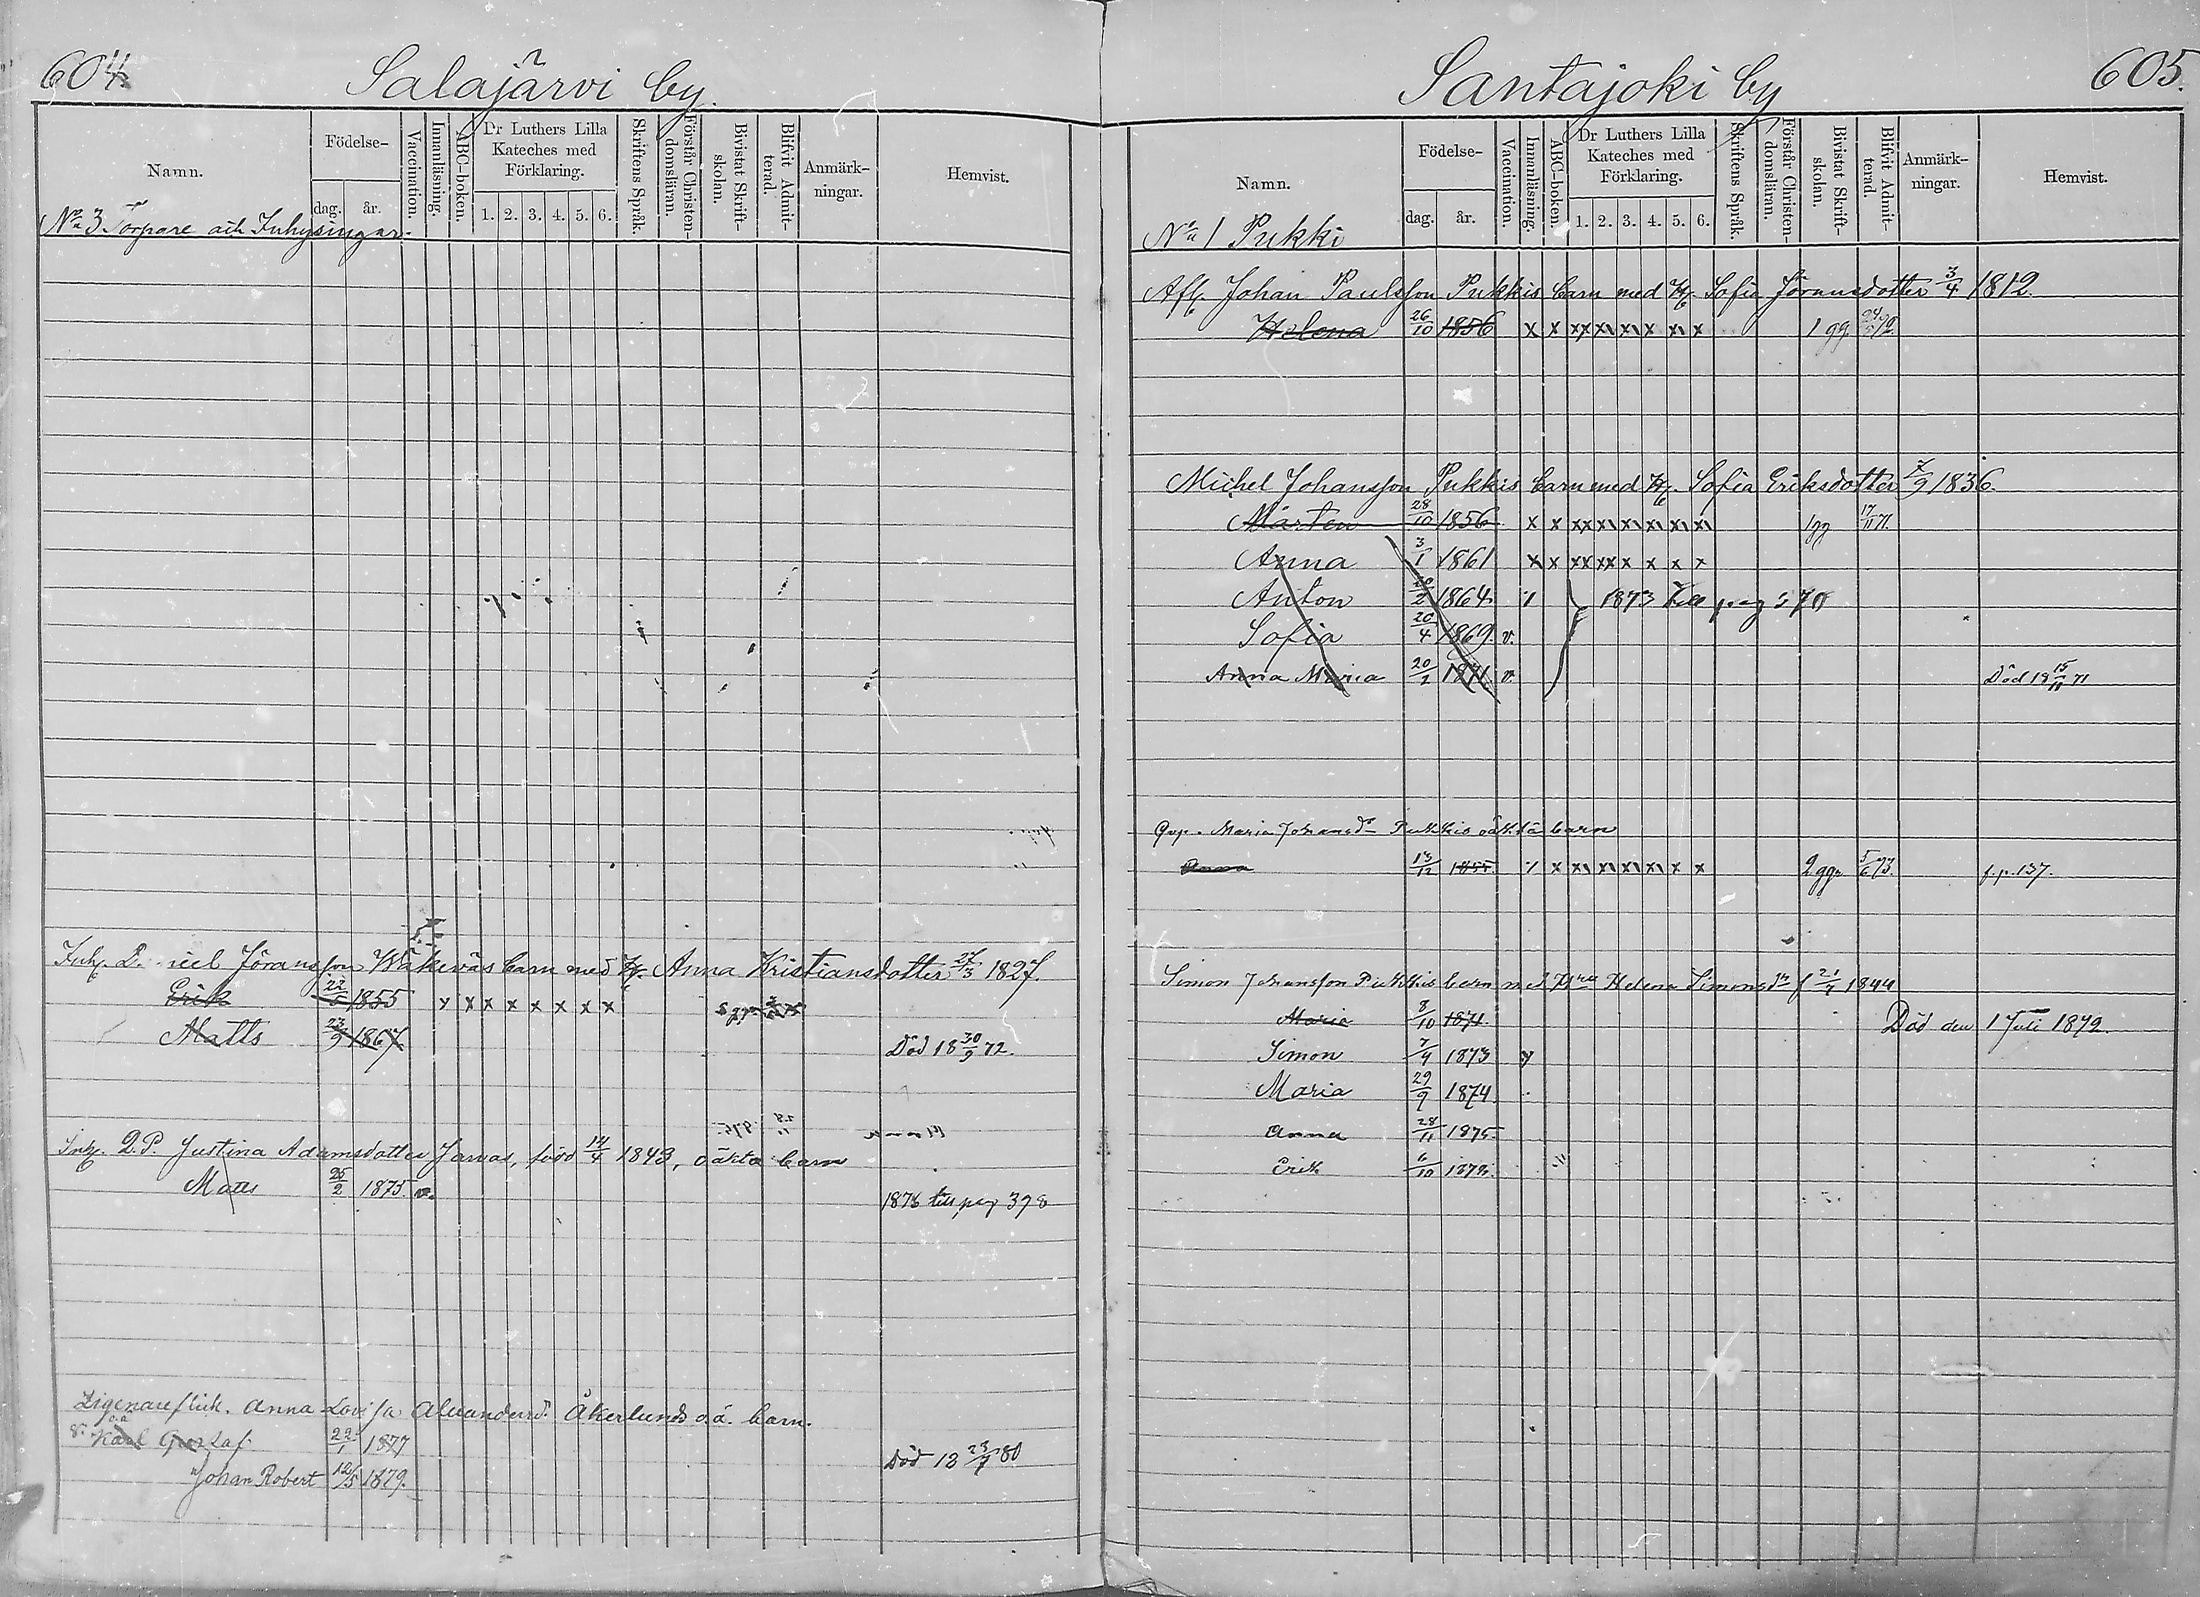 604.
Salajärvi by.
Namn.
Födelse-
dag.
år.
Vaccination.
Innanläsning.
ABC-boken.
Dr Luthers Lilla
Kateches med
Förklaring.
1. 2. 3. 4. 5. 6.
Skriftens Språk.
Förstår Christen-
domsläran.
Bivistat Skrift-
skolan.
Blifvit Admit-
terad.
Anmärk-
ningar.
Hemvist.
No 3 Torpare och Inhysingar.
Inh. Johansson barn med H. Anna Kristiansdotter 27/3 1827.
Erik 1855 x x x x x x x x
Matts 23/9 1867 Död 18 30/9 72.
Inh. Q.P. Justina Adamsdotter Jarvas, född 14/4 1843, oäkta barn
Matts 25/2 1875 v. 1876 till pag 398
Anna Lovisa Alexandersd. Åkerlunds o.ä. barn.
o.ä
v. Karl Gustaf 22/1 1877 Död 18 80
Johan Robert 12/5 1879.
605.
Santajoki by
Namn.
Födelse-
dag.
år.
Vaccination.
Innanläsning.
ABC-boken.
Dr Luthers Lilla
Kateches med
Förklaring.
1. 2. 3. 4. 5. 6.
Skriftens Språk.
Förstår Christen-
domsläran.
Bivistat Skrift-
skolan.
Blifvit Admit-
terad.
Anmärk-
ningar.
Hemvist.
No 1 Pukki
Afl. Johan Paulsson Pukkis barn med H. Sofia Göransdotter 3/4 1812.
Helena 26/10 1856 x x xx x\ x\ x x\ x 1 gg
Michel Johansson Pukkis barn med H. Sofia Eriksdotter 7/9 1836.
Mårten 28/10 1856 x x xx x\ x\ x\ x\ x\ 1 gg 17/11 71.
Anna 3/1 1861 x x xx xx x x x x
Anton 1864 1873 till pag 570
Sofia 20/4 1869. v.
Anna Maria 20/2 1871. v. Död 18 15/11 71
Qvp. Maria Johansdr Pukkis oäkta barn
Anna 13/12 1855 x x\ x\ x\ x\ x x 2 ggr 5/6 73. f.p. 137.
Simon Johansson Pukkis barn med Helena Simonsdr f 21/4 1844
Maria 8/10 1871. Död den 1 Juli 1872.
Simon 7/4 1873 v
Maria 29/9 1874
Anna 28/11 1875
Erik 6/10 1878.